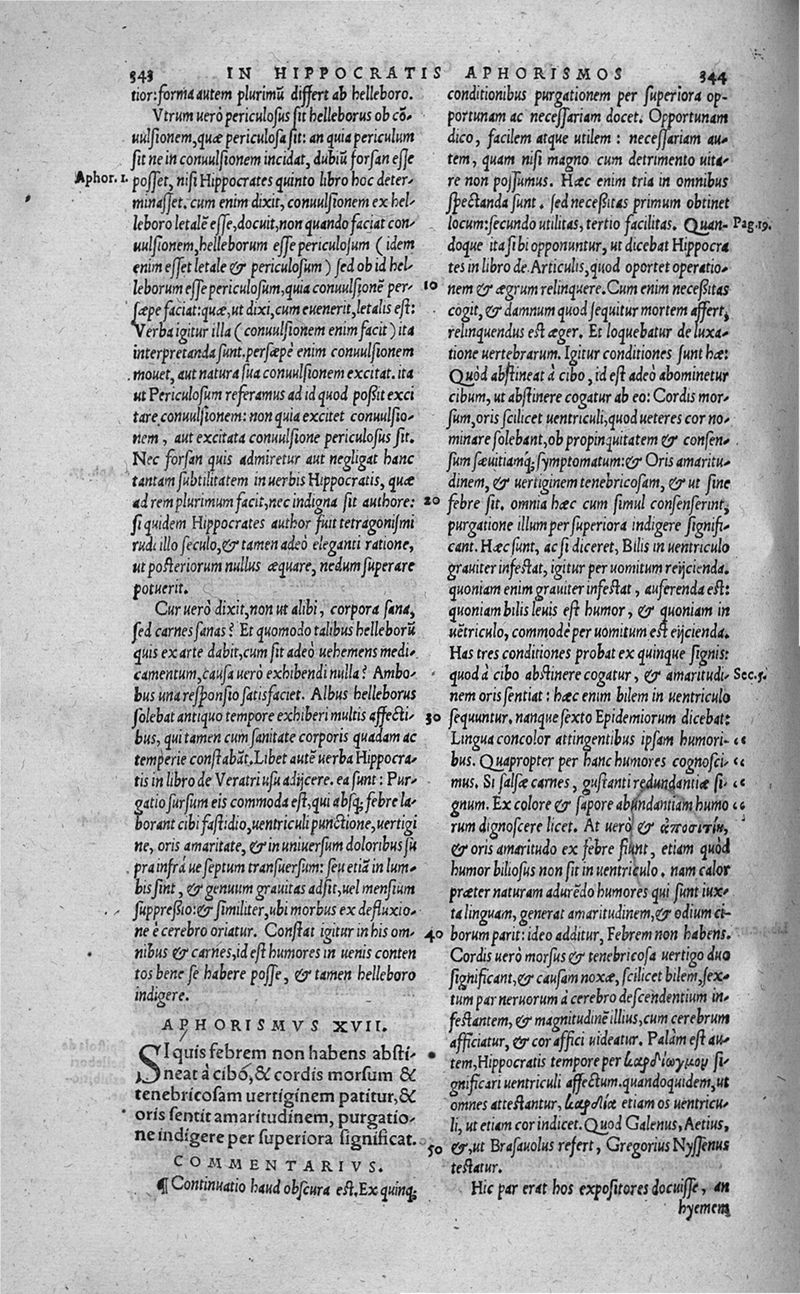 343 IN HIPPOCRATIS APHORISMOS 344
tior: forma autem plurimū differt ab helleboro.
Vtrum uerò periculosus sit helleborus ob cō-
uulsionem, quæ periculosa sit: an quia periculum
sit ne in conuulsionem incidat, dubiū forsan esse
Aphor. 1. posset, nisi Hippocrates quinto libro hoc deter-
minasset. cum enim dixit, conuulsionem ex hel-
leboro letalē esse, docuit, non quando faciat con-
uulsionem, helleborum esse periculosum (idem
enim esset letale & periculosum) sed ob id hel-
leborum esse periculosum, quia conuulsionē per-
sæpe faciat: quæ, ut dixi, cum euenerit, letalis est:
Verba igitur illa (conuulsionem enim facit) ita
interpretanda sunt. persæpè enim conuulsionem
mouet, aut natura sua conuulsionem excitat. ita
ut Periculosum referamus ad id quod possit exci
tare conuulsionem: non quia excitet conuulsio-
nem, aut excitata conuulsione periculosus sit.
Nec forsan quis admiretur aut negligat hanc
tantam subtilitatem in uerbis Hippocratis, quæ
ad rem plurimum facit, nec indigna sit authore:
si quidem Hippocrates author fuit tetragonismi
rudi illo seculo, & tamen adeò eleganti ratione,
ut posteriorum nullus æquare, nedum superare
potuerit.
Cur uerò dixit, non ut alibi, corpora sana,
sed carnes sanas? Et quomodo talibus helleborū
quis ex arte dabit, cum sit adeò uehemens medi-
camentum, causa uerò exhibendi nulla? Ambo-
bus una responsio satisfaciet. Albus helleborus
solebat antiquo tempore exhiberi multis affecti-
bus, qui tamen cum sanitate corporis quadam ac
temperie constabāt. Libet autē uerba Hippocra-
tis in libro de Veratri usu adijcere. ea sunt: Pur-
gatio sursum eis commoda est, qui absq; febre la-
borant cibi fastidio, uentriculi punctione, uertigi
ne, oris amaritate, & in uniuersum doloribus su
pra infrá ue septum transuersum: seu etiā in lum-
bis sint, & genuum grauitas adsit, uel mensium
suppressio: & similiter, ubi morbus ex defluxio-
ne è cerebro oriatur. Constat igitur in his om-
nibus & carnes, id est humores in uenis conten
tos bene se habere posse, & tamen helleboro
indigere.
APHORISMVS XVII.
SI quis febrem non habens absti-
neat à cibò, & cordis morsum &
tenebricosam uertiginem patitur, &
oris sentit amaritudinem, purgatio-
ne indigere per superiora significat.
COMMENTARIVS.
¶ Continuatio haud obscura est. Ex quinq;
conditionibus purgationem per superiora op-
portunam ac necessariam docet. Opportunam
dico, facilem atque utilem: necessariam au-
tem, quam nisi magno cum detrimento uita-
re non possumus. Hæc enim tria in omnibus
spectanda sunt. sed necessitas primum obtinet
locum: secundo utilitas, tertio facilitas. Quan- Pag. 19.
doque ita sibi opponuntur, ut dicebat Hippocra
tes in libro de Articulis, quod oportet operatio-
10 nem & ægrum relinquere. Cum enim necessitas
cogit, & damnum quod sequitur mortem affert,
relinquendus est æger. Et loquebatur de luxa-
tione uertebrarum. Igitur conditiones sunt hæ:
Quòd abstineat à cibo, id est adeò abominetur
cibum, ut abstinere cogatur ab eo: Cordis mor-
sum, oris scilicet uentriculi, quod ueteres cor no-
minare solebant, ob propinquitatem & consen-
sum sæuitiamq; symptomatum: & Oris amaritu-
dinem, & uertiginem tenebricosam, & ut sine
20 febre sit. omnia hæc cum simul consenserint,
purgatione illum per superiora indigere signifi-
cant. Hæc sunt, ac si diceret, Bilis in uentriculo
grauiter infestat, igitur per uomitum reijcienda.
quoniam enim grauiter infestat, auferenda est:
quoniam bilis leuis est humor, & quoniam in
uētriculo, commodè per uomitum est eijcienda.
Has tres conditiones probat ex quinque signis:
quod à cibo abstinere cogatur, & amaritudi- Sec. 5.
nem oris sentiat: hæc enim bilem in uentriculo
30 sequuntur. nanque sexto Epidemiorum dicebat:
Lingua concolor attingentibus ipsam humori- “
bus. Quapropter per hanc humores cognosci- “
mus. Si salsæ carnes, gustanti redundantiæ si- “
gnum. Ex colore & sapore abundantiam humo “
rum dignoscere licet. At uerò & ἀποσιτίη,
& oris amaritudo ex febre fiunt, etiam quòd
humor biliosus non sit in uentriculo. nam calor
præter naturam adurēdo humores qui sunt iux-
ta linguam, generat amaritudinem, & odium ci-
40 borum parit: ideo additur, Febrem non habens.
Cordis uerò morsus & tenebricosa uertigo duo
significant, & causam noxæ, scilicet bilem, sex-
tum par neruorum à cerebro descendentium in-
festantem, & magnitudinē illius, cum cerebrum
afficiatur, & cor affici uideatur. Palàm est au-
tem, Hippocratis tempore per καρδιωγμου si-
gnificari uentriculi affectum. quandoquidem, ut
omnes attestantur, καρδία etiam os uentricu-
li, ut etiam cor indicet. Quod Galenus, Aetius,
50 &, ut Brasauolus refert, Gregorius Nyssenus
testatur.
Hic par erat hos expositores docuisse, an
hyemem